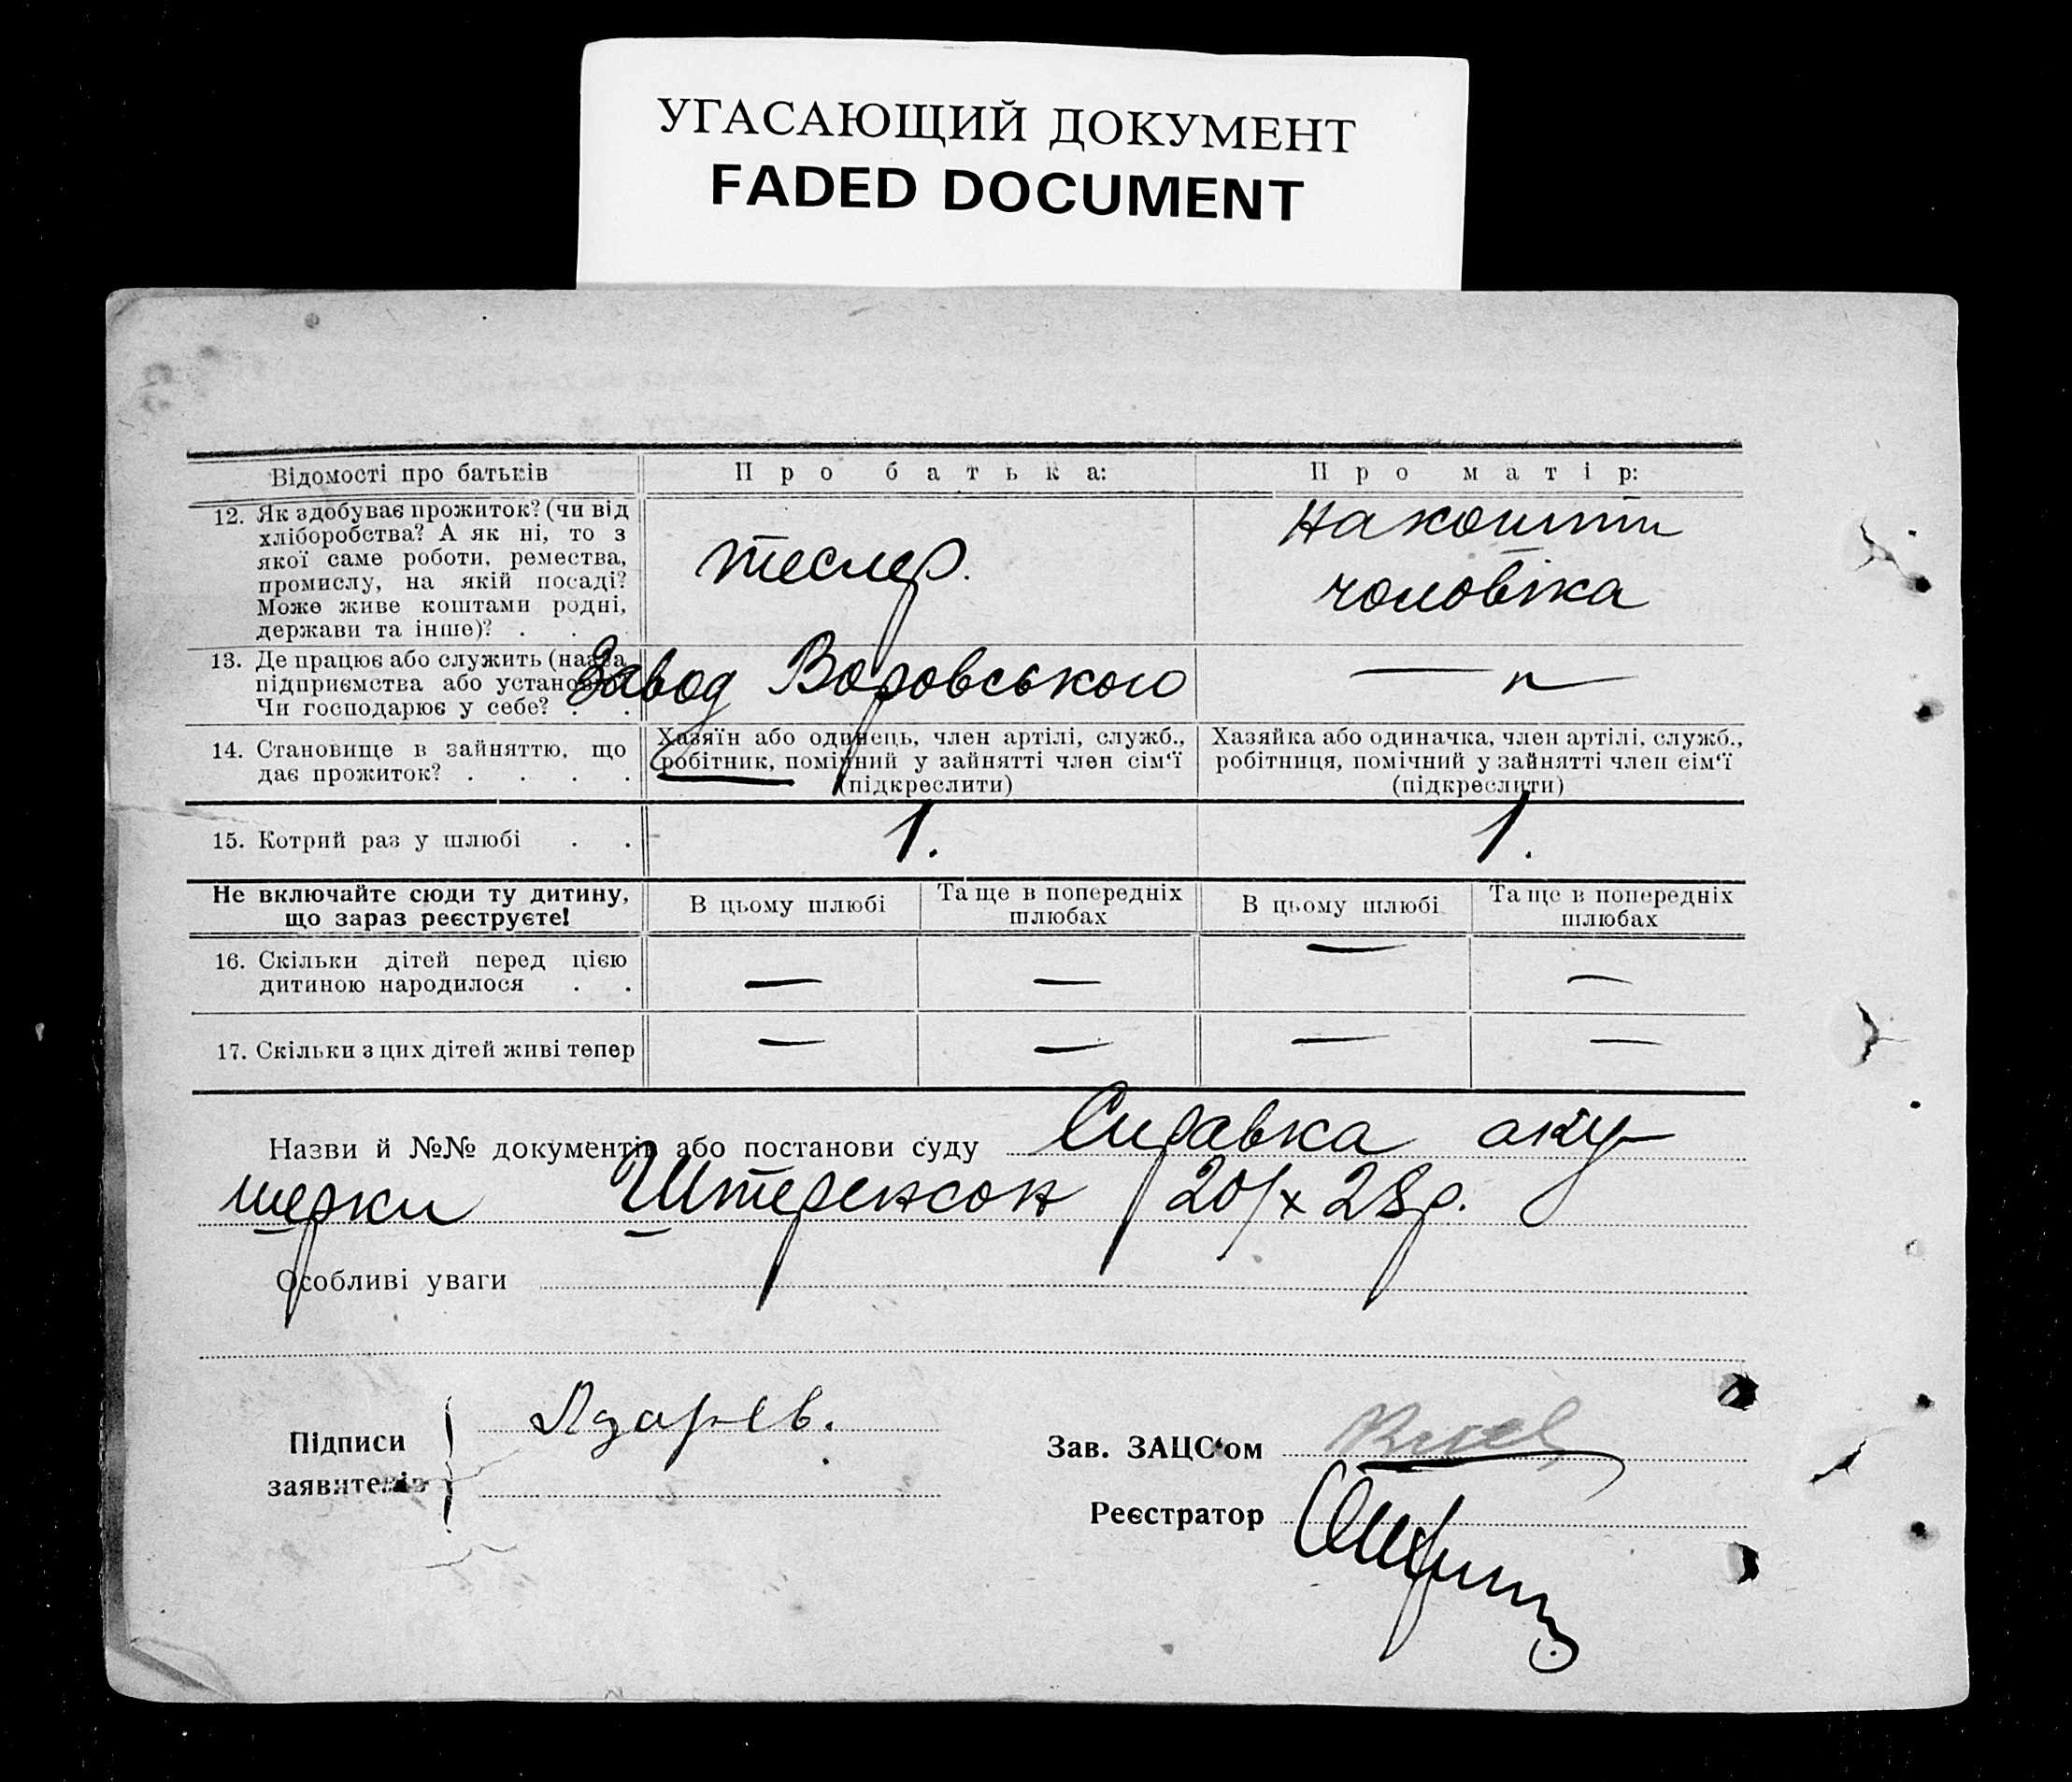 УГАСАЮЩИЙ ДОКУМЕНТ
FADED DOCUMENT
Відомості про батьків
Про батька:
Про матір:
12. Як здобуває прожиток? (чи від
хліборобства? А як ні, то з
якої саме роботи, ремества,
промислу, на якій посаді?
Може живе коштами родні,
держави та інше)? . .
тесляр.
на кошти
чоловіка
13. Де працює або служить (назва
підприємства або установи)
Чи господарює у себе? . .
Завод Воровського
— „ —
14. Становище в зайняттю, що
дає прожиток? . . . .
Хазяїн або одинець, член артілі, служб.,
робітник, помічний у зайнятті член сім‘ї
(підкреслити)
Хазяйка або одиначка, член артілі, служб.,
робітниця, помічний у зайнятті член сім‘ї
(підкреслити)
15. Котрий раз у шлюбі . .
1.
1.
Не включайте сюди ту дитину,
що зараз реєструєте!
В цьому шлюбі
Та ще в попередніх
шлюбах
В цьому шлюбі
Та ще в попередніх
шлюбах
16. Скільки дітей перед цією
дитиною народилося . .
— — — —
17. Скільки з цих дітей живі тепер
— — — —
Назви й №№ документів або постанови суду Справка аку-
шерки Штеренсон 20/x 28р.
Особливі уваги
Підписи
заявителів
Азарєв.
Зав. ЗАЦС‘ом
Реєстратор